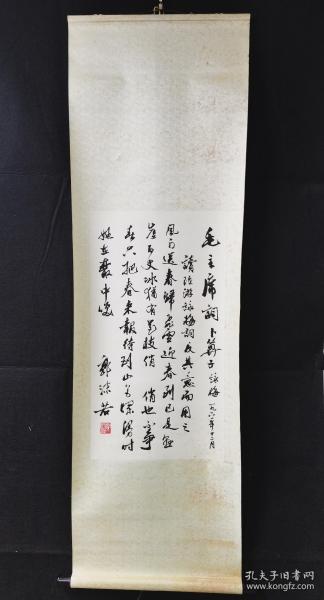 毛主席詞卜算子詠梅一九六一年十二月
讀陸游詠梅詞反其意而用之
風雨送春歸飛雪迎春到已是懸
崖百丈冰猶有花枝俏 俏也不爭
春只把春來報待到山花爛漫時
她在叢中笑 郭沫若
孔夫子旧书网
www.kongfz.com